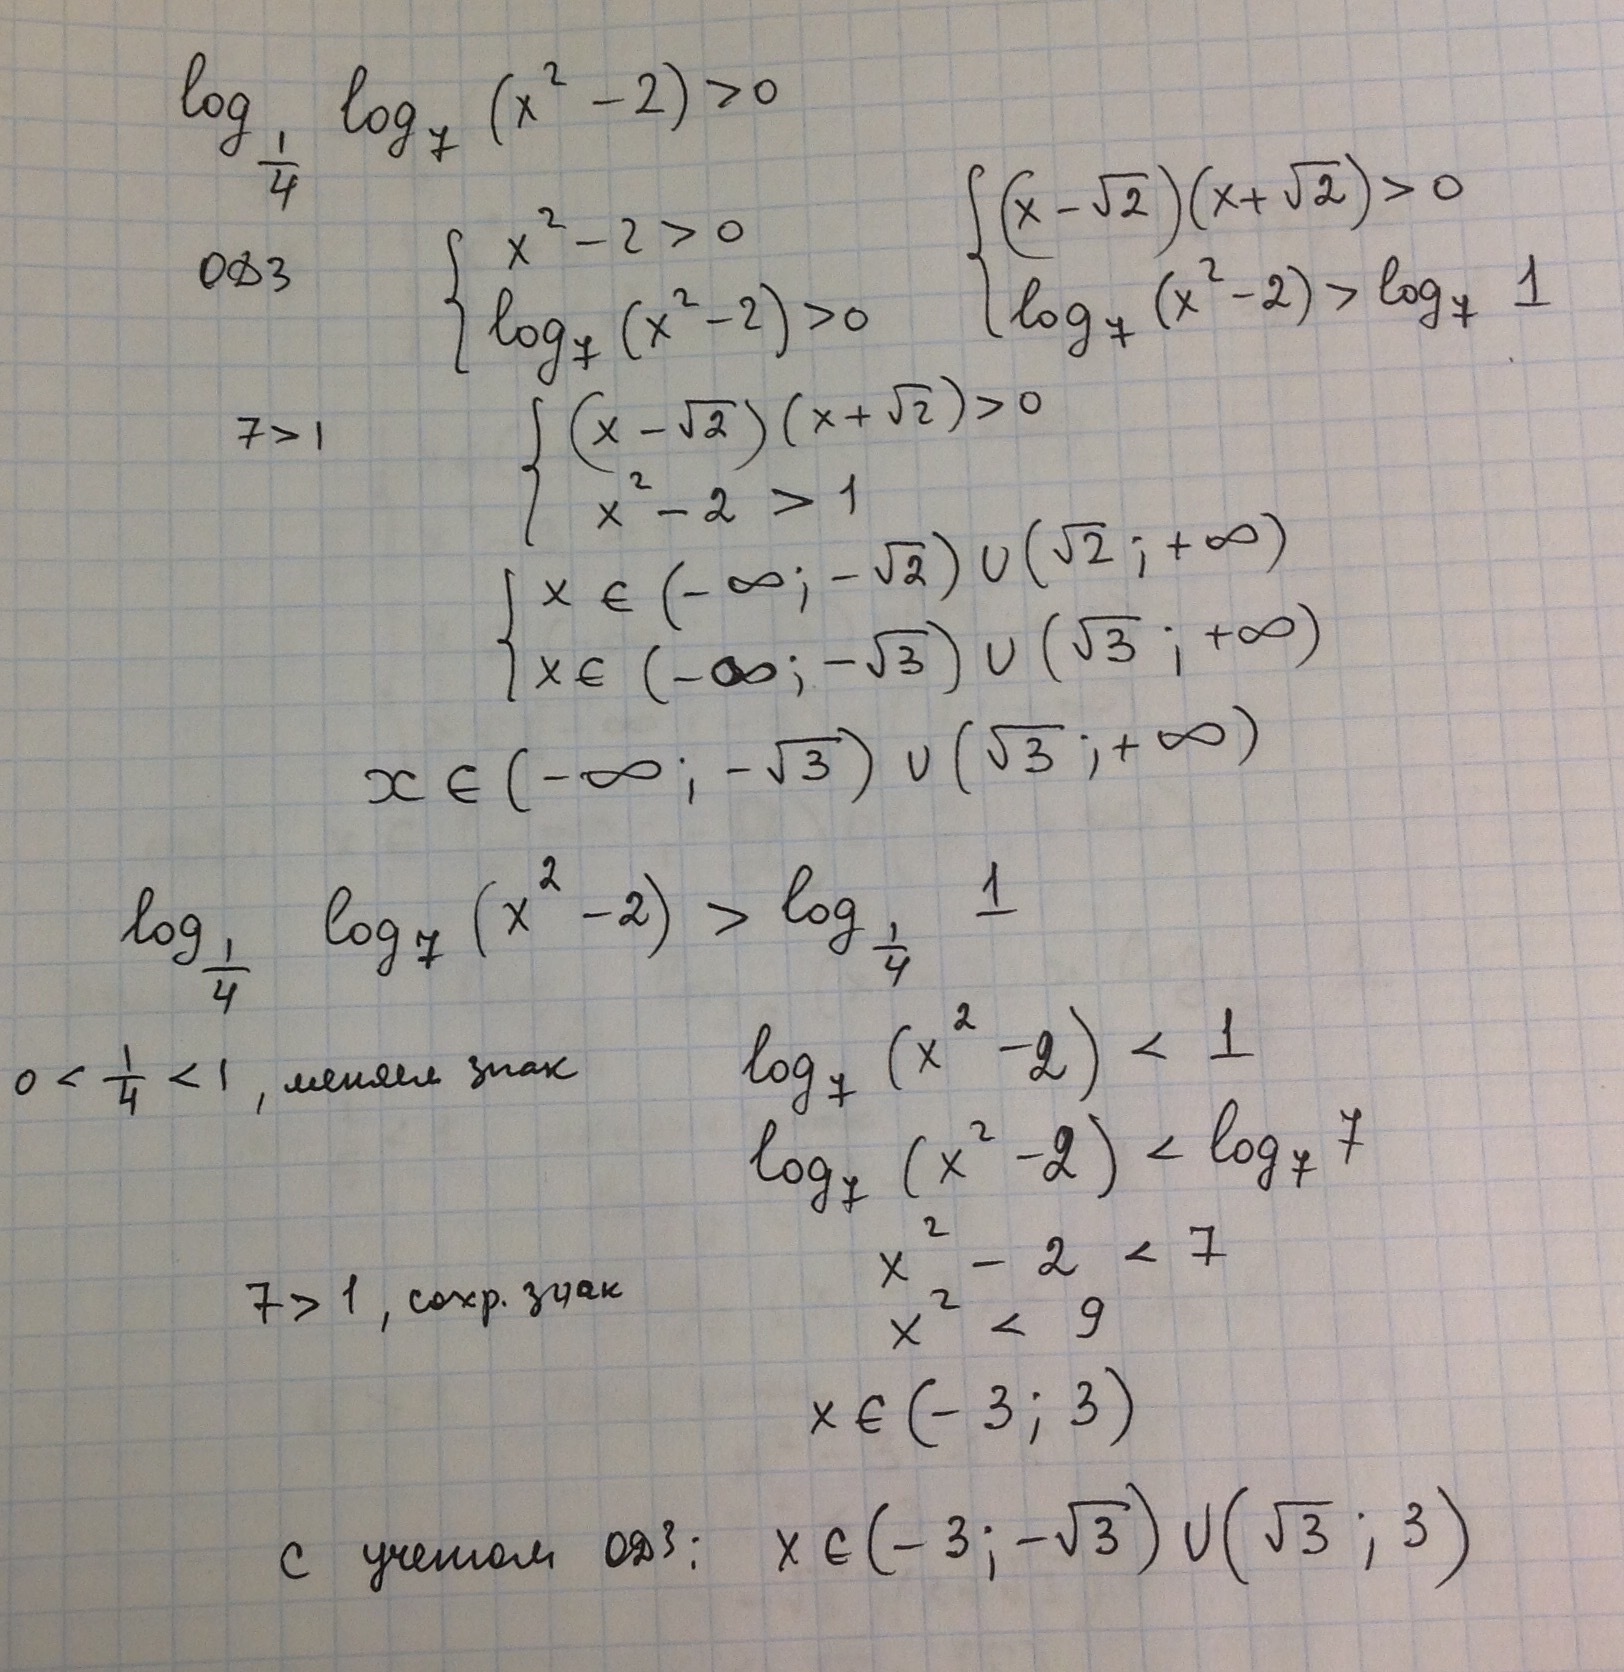 log_{1/4} log_7 (x² - 2) > 0
ОДЗ { x² - 2 > 0 { (x - √2)(x + √2) > 0
log_7 (x² - 2) > 0 log_7 (x² - 2) > log_7 1
7 > 1 { (x - √2)(x + √2) > 0
x² - 2 > 1
{ x ∈ (-∞; -√2) ∪ (√2; +∞)
x ∈ (-∞; -√3) ∪ (√3; +∞)
x ∈ (-∞; -√3) ∪ (√3; +∞)
log_{1/4} log_7 (x² - 2) > log_{1/4} 1
0 < 1/4 < 1, меняем знак log_7 (x² - 2) < 1
log_7 (x² - 2) < log_7 7
x² - 2 < 7
7 > 1, сохр. знак
x² < 9
x ∈ (-3; 3)
с учетом ОДЗ: x ∈ (-3; -√3) ∪ (√3; 3)